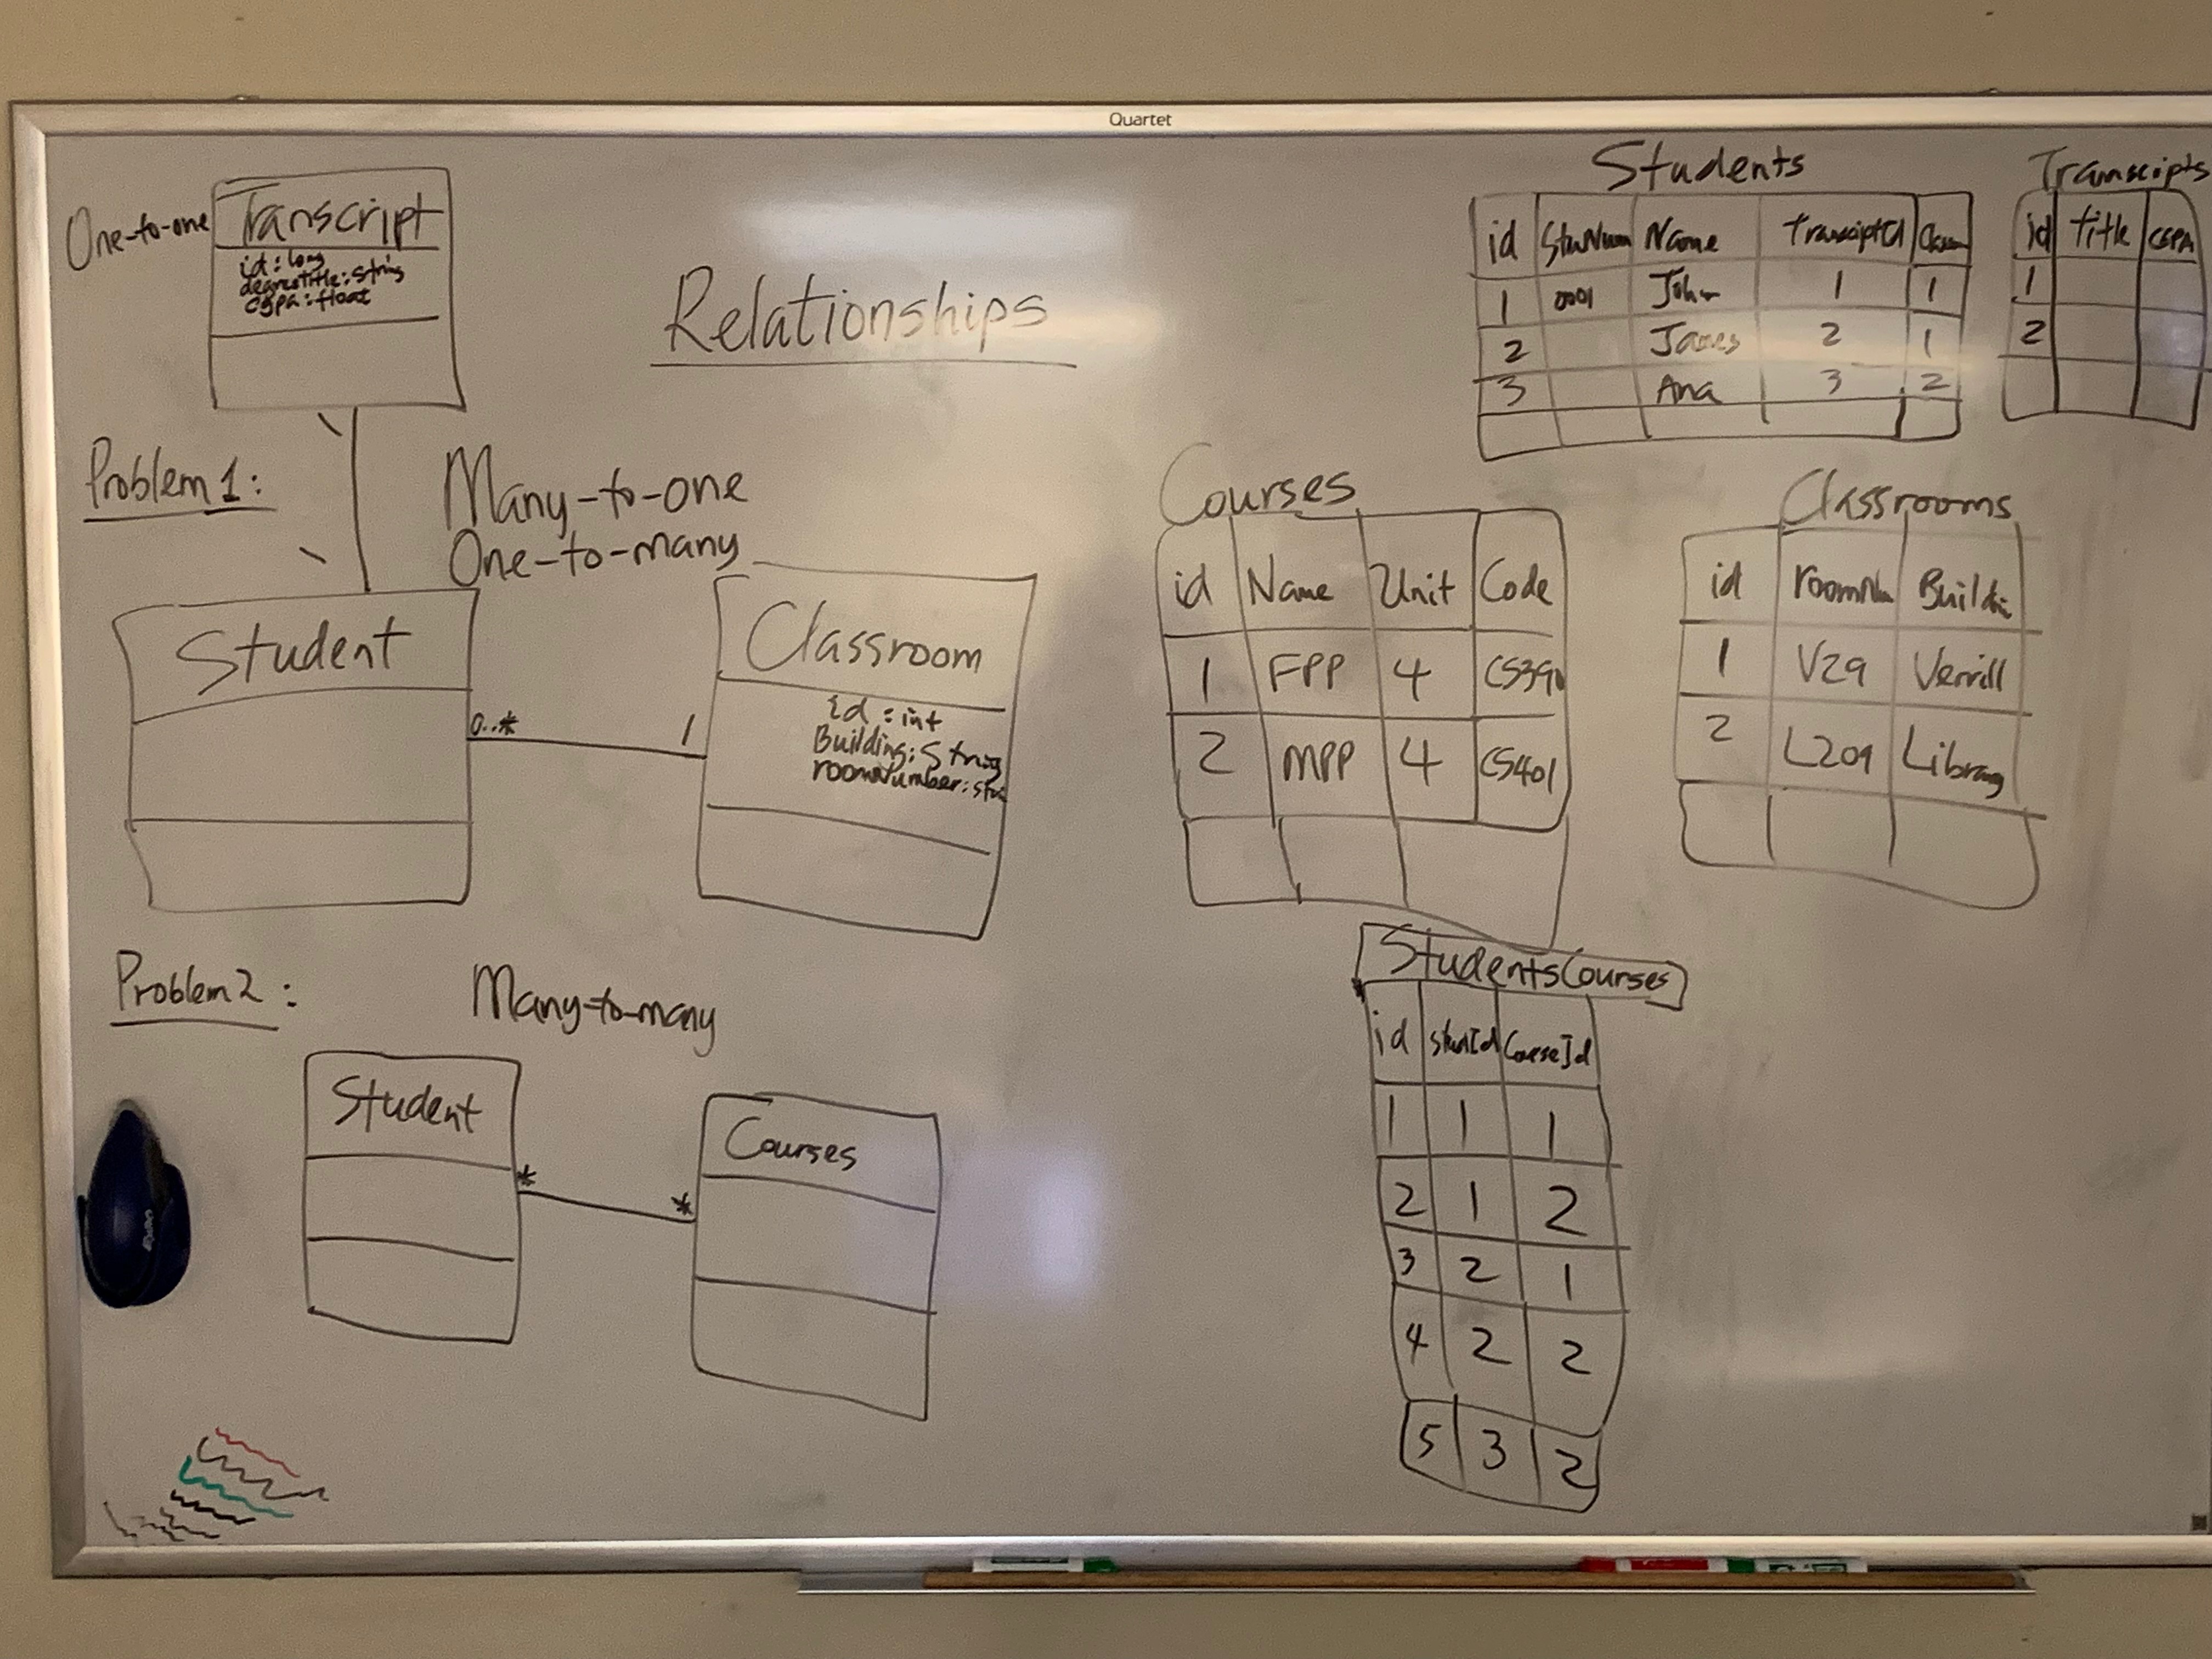 Quartet
One-to-one
Transcript
id : long
degreeTitle : String
cgpa : float
Relationships
Problem 1 :
Many-to-one
One-to-many
Student
0..*
1
Classroom
id : int
Building : String
roomNumber : Stri
Problem 2 :
Many-to-many
Student
*
*
Courses
Students
id StuNum Name TranscriptId
1 0001 John 1 1
2 James 2 1
3 Ana 3 2
Transcipts
id title CGPA
1
2
Courses
id Name Unit Code
1 FPP 4 CS390
2 MPP 4 CS401
Classrooms
id roomNum
1 V29 Verrill
2 L209 Library
StudentsCourses
id StudId CourseId
1 1 1
2 1 2
3 2 1
4 2 2
5 3 2